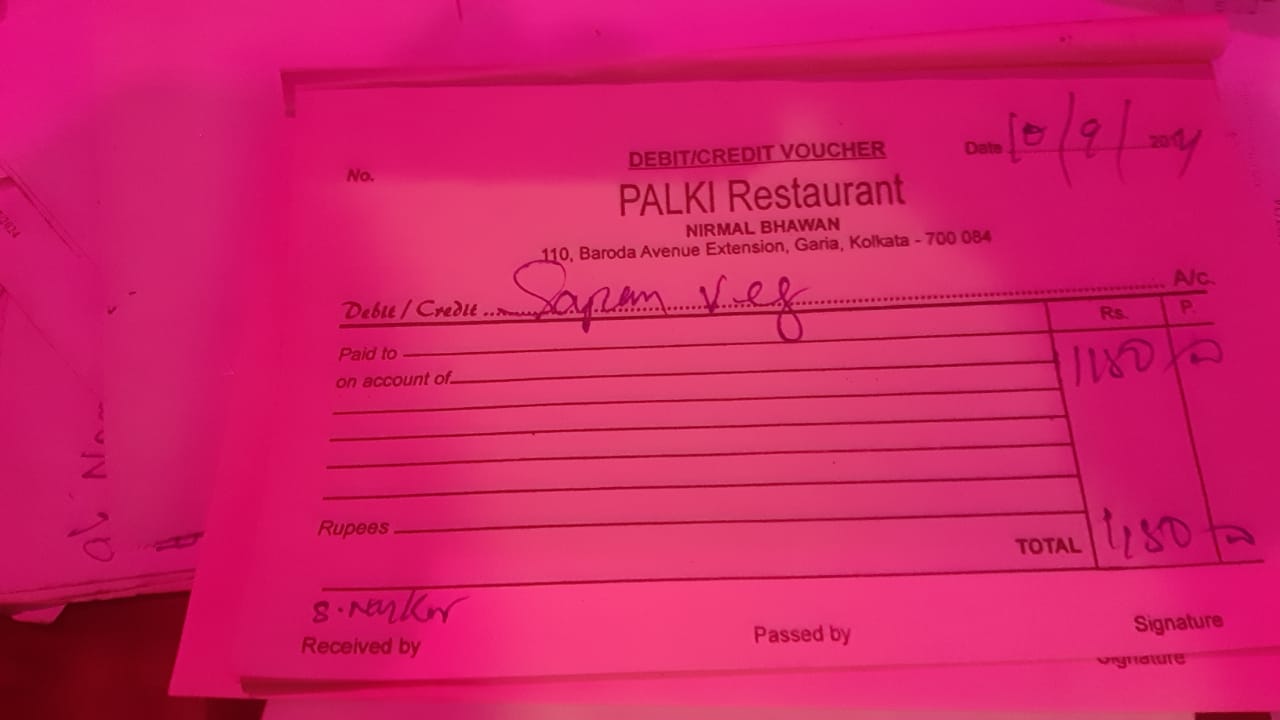 DEBIT/CREDIT VOUCHER
No.
Date 10/9/2024
PALKI Restaurant
NIRMAL BHAWAN
110, Baroda Avenue Extension, Garia, Kolkata - 700 084
Debit / Credit Sapan Veg A/c.
Rs. P.
Paid to 1180/-
on account of
Rupees
TOTAL 1180/-
S. Naskar
Received by Passed by Signature
Signature
2024